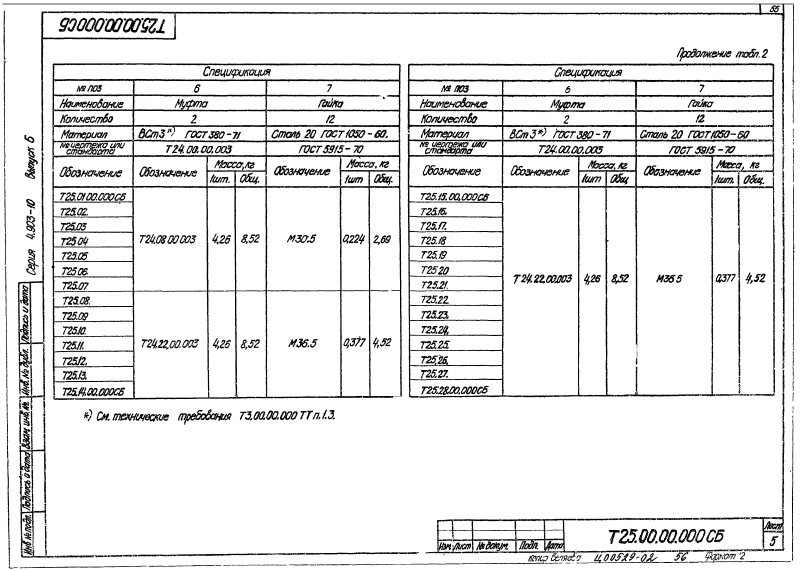 55
Т25.00.00.000СБ
Продолжение табл. 2
Спецификация
№ поз 6 7
Наименование Муфта Гайка
Количество 2 12
Материал ВСт 3 *) ГОСТ 380-71 Сталь 20 ГОСТ 1050-60.
№ чертежа или стандарта Т24.00.00.003 ГОСТ 5915-70
Обозначение Обозначение Масса, кг Обозначение Масса, кг
1шт. Общ. 1шт Общ.
Т25.01.00.000СБ
Т25.02.
Т25.03
Т25.04 Т24.08.00.003 4,26 8,52 М30.5 0,224 2,69
Т25.05
Т25.06.
Т25.07
Т25.08.
Т25.09
Т25.10.
Т25.11. Т24.22.00.003 4,26 8,52 М36.5 0,377 4,52
Т25.12.
Т25.13.
Т25.14.00.000СБ
Спецификация
№ поз 6 7
Наименование Муфта Гайка
Количество 2 12
Материал ВСт 3 *) ГОСТ 380-71 Сталь 20 ГОСТ 1050-60
№ чертежа или стандарта Т24.00.00.003 ГОСТ 5915-70
Обозначение Обозначение Масса, кг Обозначение Масса, кг
1шт. Общ. 1шт. Общ.
Т25.15.00.000СБ
Т25.16.
Т25.17.
Т25.18
Т25.19
Т25.20
Т25.21. Т24.22.00.003 4,26 8,52 М36.5 0,377 4,52
Т25.22.
Т25.23.
Т25.24.
Т25.25
Т25.26.
Т25.27.
Т25.28.00.000СБ
*) См. технические требования Т3.00.00.000 ТТ п.1.3.
Серия 4.903-10 Выпуск 6
Инв. № подл. Подпись и дата Взам. инв. № Инв. № дубл. Подпись и дата
Изм. Лист № докум. Подп. Дата
Т25.00.00.000 СБ
Лист
5
Копир. Беляева Ц00529-02 56 Формат 2